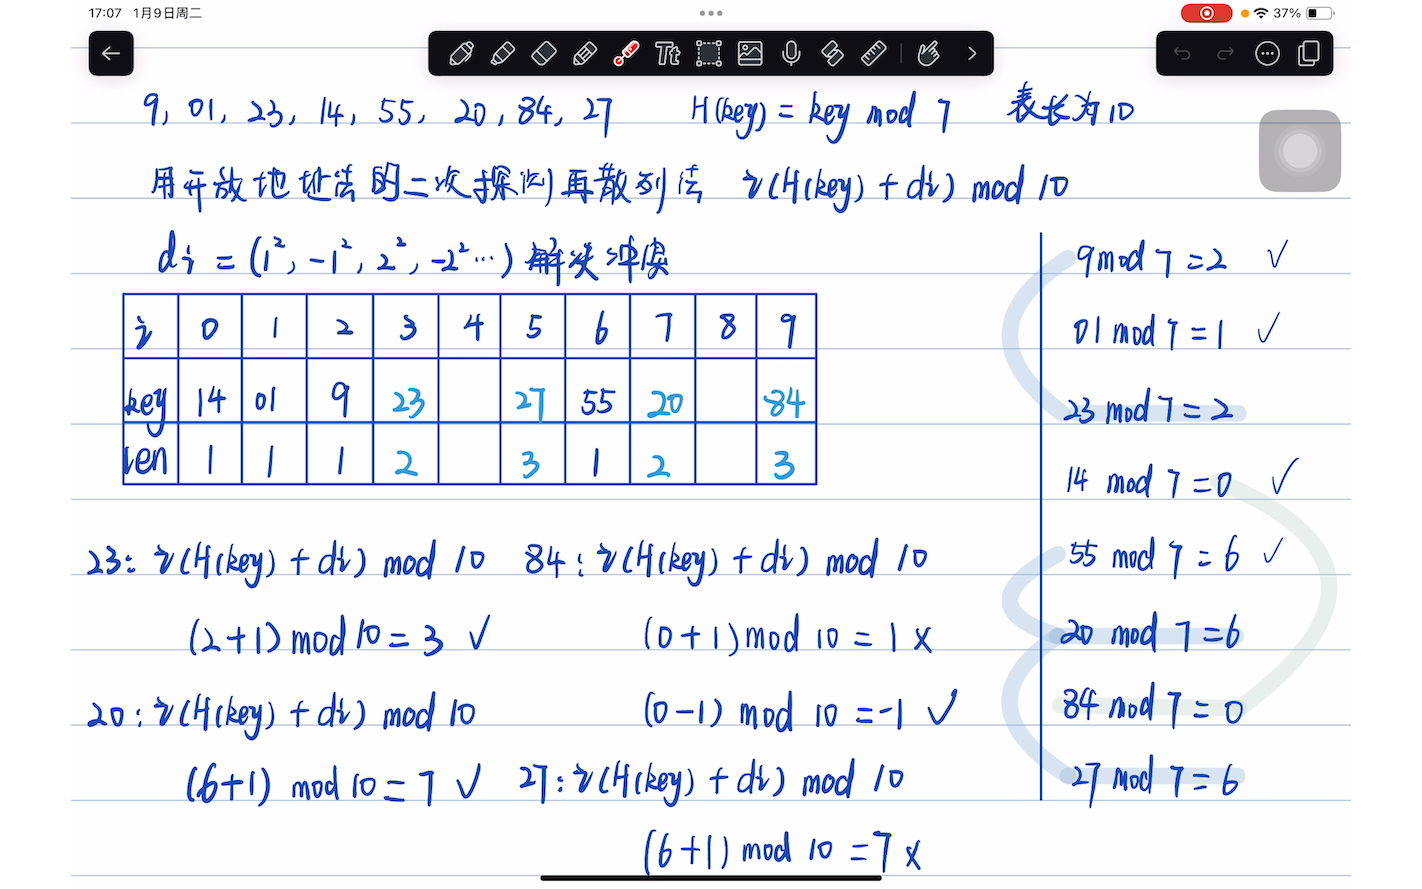 17:07 1月9日周二
37%
Tt
9, 01, 23, 14, 55, 20, 84, 27 H(key) = key mod 7 表长为10
用开放地址法的二次探测再散列法 i(H(key) + di) mod 10
di = (1², -1², 2², -2² ...) 解决冲突
i 0 1 2 3 4 5 6 7 8 9
key 14 01 9 23 27 55 20 84
len 1 1 1 2 3 1 2 3
23: i(H(key) + di) mod 10
(2+1) mod 10 = 3 ✓
20: i(H(key) + di) mod 10
(6+1) mod 10 = 7 ✓
84: i(H(key) + di) mod 10
(0+1) mod 10 = 1 x
(0-1) mod 10 = -1 ✓
27: i(H(key) + di) mod 10
(6+1) mod 10 = 7 x
9 mod 7 = 2 ✓
01 mod 7 = 1 ✓
23 mod 7 = 2
14 mod 7 = 0 ✓
55 mod 7 = 6 ✓
20 mod 7 = 6
84 mod 7 = 0
27 mod 7 = 6